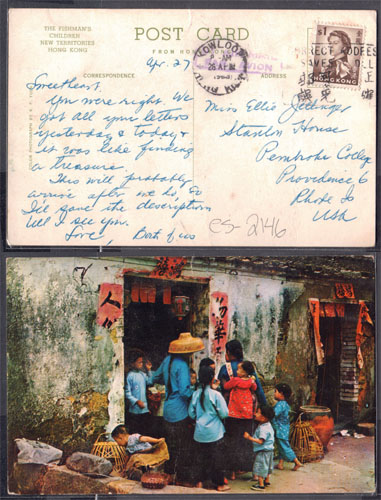 THE FISHMAN'S
CHILDREN
NEW TERRITORIES
HONG KONG
POST CARD
FROM HONG KONG
CORRESPONDENCE
ADDRESS
Apr. 27
Sweetheart,
You were right. We
got all your letters
yesterday & today &
it was like finding
a treasure.
This will probably
arrive after we do, so
I'll save the description
till I see you.
Love, Both of us
KOWLOON
26 AP
1963
HONG KONG
$1
HONG KONG
Miss Ellie
Stanton House
Pembroke College
Providence 6
Rhode Is
USA
CS-2146